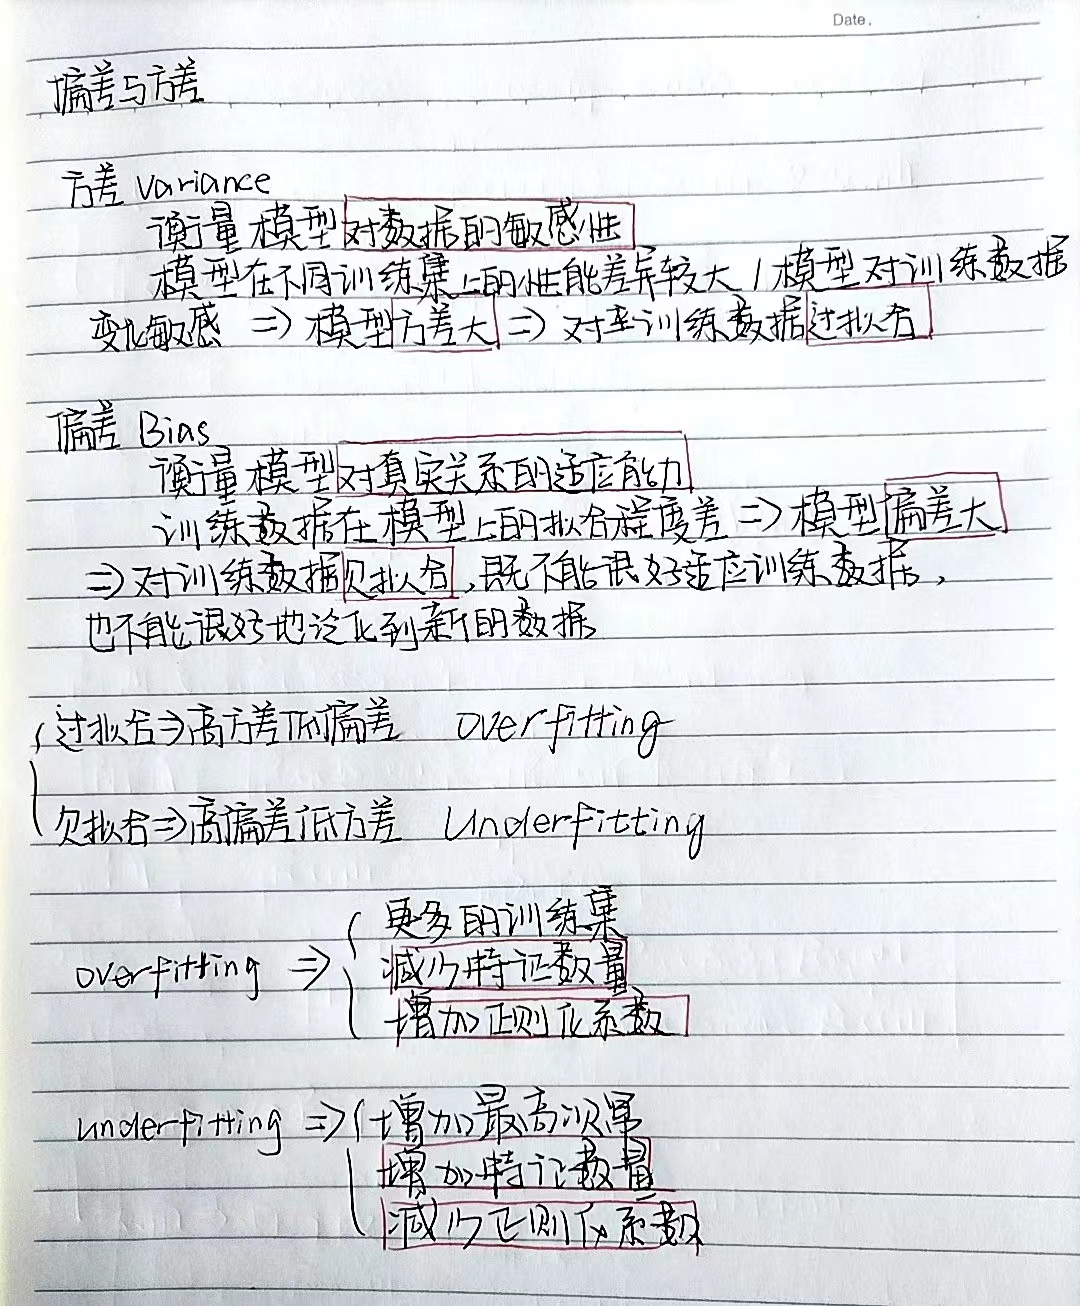 Date.
偏差与方差
方差 Variance
衡量模型对数据的敏感性
模型在不同训练集上的性能差异较大 / 模型对训练数据
变化敏感 => 模型方差大 => 对训练数据过拟合
偏差 Bias
衡量模型对真实关系的适应能力
训练数据在模型上的拟合程度差 => 模型偏差大
=> 对训练数据欠拟合, 既不能很好适应训练数据,
也不能很好地泛化到新的数据
过拟合 => 高方差低偏差 overfitting
欠拟合 => 高偏差低方差 Underfitting
更多的训练集
减少特证数量
overfitting =>
增加正则化系数
underfitting => 增加最高次幂
增加特证数量
减少正则化系数